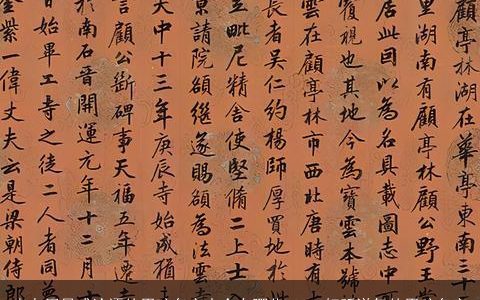 顧亭林湖在華亭東南三十
里湖南有顧亭林顧公野王嘗
居此因以為名具載圖志中
覆視也其地今為寶雲本號
雲在顧亭林市西北唐時有
長者吳仁約楊師厚買地於
立毗尼精舍使堅脩二上士
請院額繼遂賜額為法雲
天中十三年庚辰寺始成
言顧公斷碑事天福五年遷
於南石晉開運元年十二月
日始畢工寺之徒二人者同
金紫一偉丈夫云是梁朝侍郎